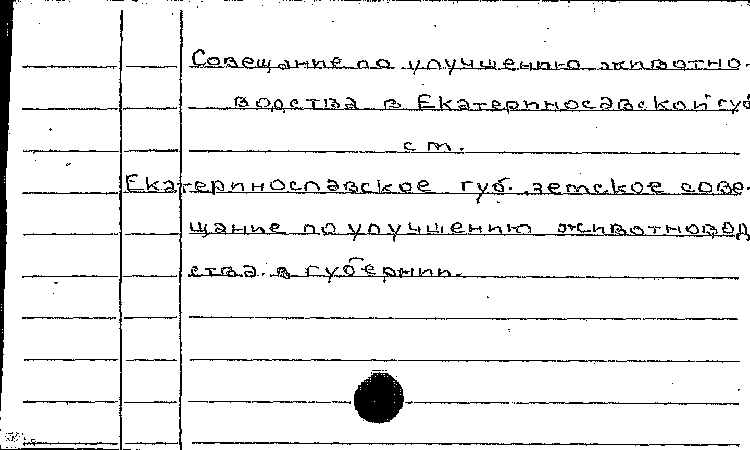 Совещание по улучшению животно-
водства в Екатериносавской губ
см.
Екатеринославское губ. земское сове-
щание по улучшению животновод
ства в губернии.